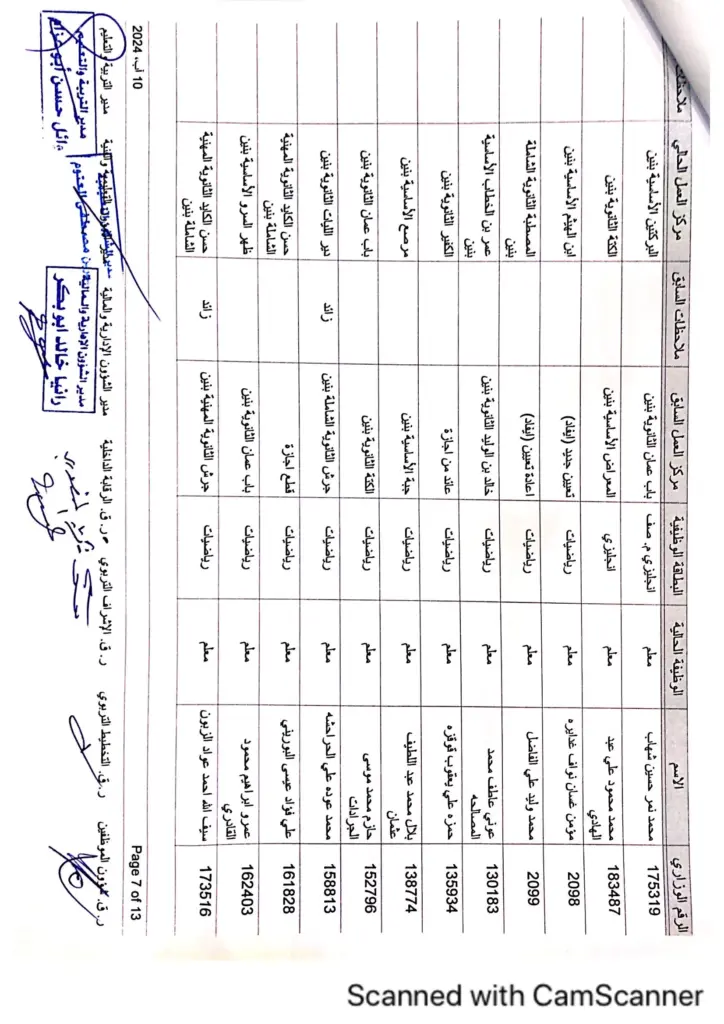 الرقم الوزاري الاسم الوظيفة الحالية البطاقة الوظيفية مركز العمل السابق ملاحظات السابق مركز العمل الحالي ملاحظات
175319 محمد نمر حسين شهاب معلم انجليزي م. صف باب عمان الثانوية بنين البركتين الأساسية بنين
183487 محمد محمود علي عبد الهادي معلم انجليزي المعراض الأساسية بنين الكتة الثانوية بنين
2098 مؤمن غسان نواف غدايره معلم رياضيات تعيين جديد (ايفاد) ابن الهيثم الأساسية بنين
2099 محمد وليد علي الفاضل معلم رياضيات اعادة تعيين (ايفاد) المصطبة الثانوية الشاملة بنين
130183 عوني عاطف محمد المصالحه معلم رياضيات خالد بن الوليد الثانوية بنين عمر بن الخطاب الأساسية بنين
135934 حمزه علي يعقوب قوقزه معلم رياضيات عائد من اجازة الكفير الثانوية بنين
138774 بلال محمد عبد اللطيف عثمان معلم رياضيات جبة الأساسية بنين مرصع الأساسية بنين
152796 حازم محمد موسى الجرادات معلم رياضيات الكتة الثانوية بنين باب عمان الثانوية بنين
158813 محمد عوده علي الحراحشه معلم رياضيات جرش الثانوية الشاملة بنين زائد دير الليات الثانوية بنين
161828 علي فؤاد عيسى البوريني معلم رياضيات قطع اجازة حسن الكايد الثانوية المهنية الشاملة بنين
162403 عمرو ابراهيم محمود القادري معلم رياضيات باب عمان الثانوية بنين ظهر السرو الأساسية بنين
173516 سيف الله احمد عواد الزبون معلم رياضيات جرش الثانوية المهنية بنين زائد حسن الكايد الثانوية المهنية الشاملة بنين
Page 7 of 13
10 آب، 2024
ر. ق. شؤون الموظفين ر. ق. التخطيط التربوي ر. ق. الإشراف التربوي ر. ق. الرقابة الداخلية مدير الشؤون الإدارية والمالية مدير التربية والتعليم
مدير الشؤون الإدارية والمالية
رانيا خالد ابو بكر
مدير التربية والتعليم
وائل حسن أبو عزام
Scanned with CamScanner